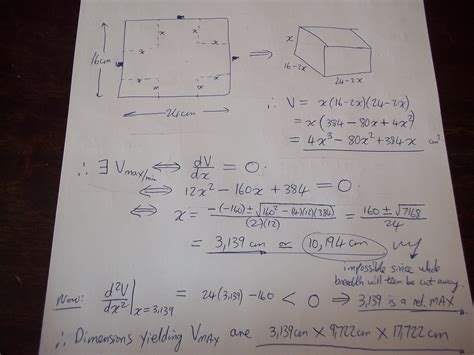 16cm
x x
x x
24cm
⇒
x
16-2x
24-2x
∴ V = x(16-2x)(24-2x)
= x(384 - 80x + 4x²)
= 4x³ - 80x² + 384x cm³
∴ ∃ Vmax/min ⟺ dV/dx = 0
⟺ 12x² - 160x + 384 = 0
⟺ x = -(-160) ± √160² - (4)(12)(384) / (2)(12) = 160 ± √7168 / 24
= 3,139 cm or 10,194 cm
impossible since whole
breadth will then be cut away.
Now: d²V/dx² | x=3,139 = 24(3,139) - 160 < 0 ⇒ 3,139 is a rel. MAX
∴ Dimensions yielding VMAX are 3,139cm × 9,722cm × 17,722cm